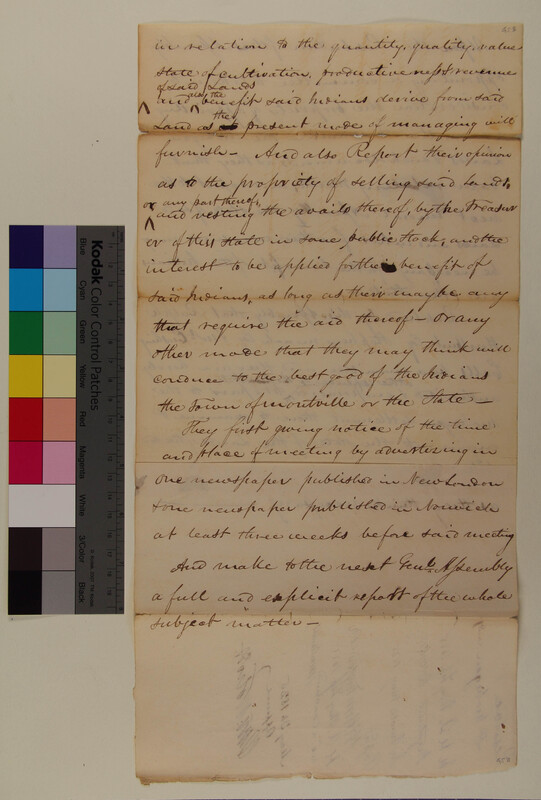 in relation to the quantity, quality, value
state of cultivation, productiveness & revenue
of said Lands
and also the benefit said Indians derive from said
Land as the present mode of managing will
furnish— And also Report their opinion
as to the propriety of selling said Lands,
or any part thereof,
and vesting the avails thereof, by the Treasur
er of this State in some public Stock, and the
interest to be applied for the benefit of
said Indians, as long as their may be any
that require the aid thereof— or any
other mode that they may think will
conduce to the best good of the Indians
the Town of Montville or the State—
They first giving notice of the time
and place of meeting by advertizing in
one newspaper published in New London
& one newspaper published in Norwich
at least three weeks before said meeting
And make to the next Genl. Assembly
a full and explicit report of the whole
subject matter—
Kodak Color Control Patches
Blue
Cyan
Green
Yellow
Red
Magenta
White
3/Color
Black